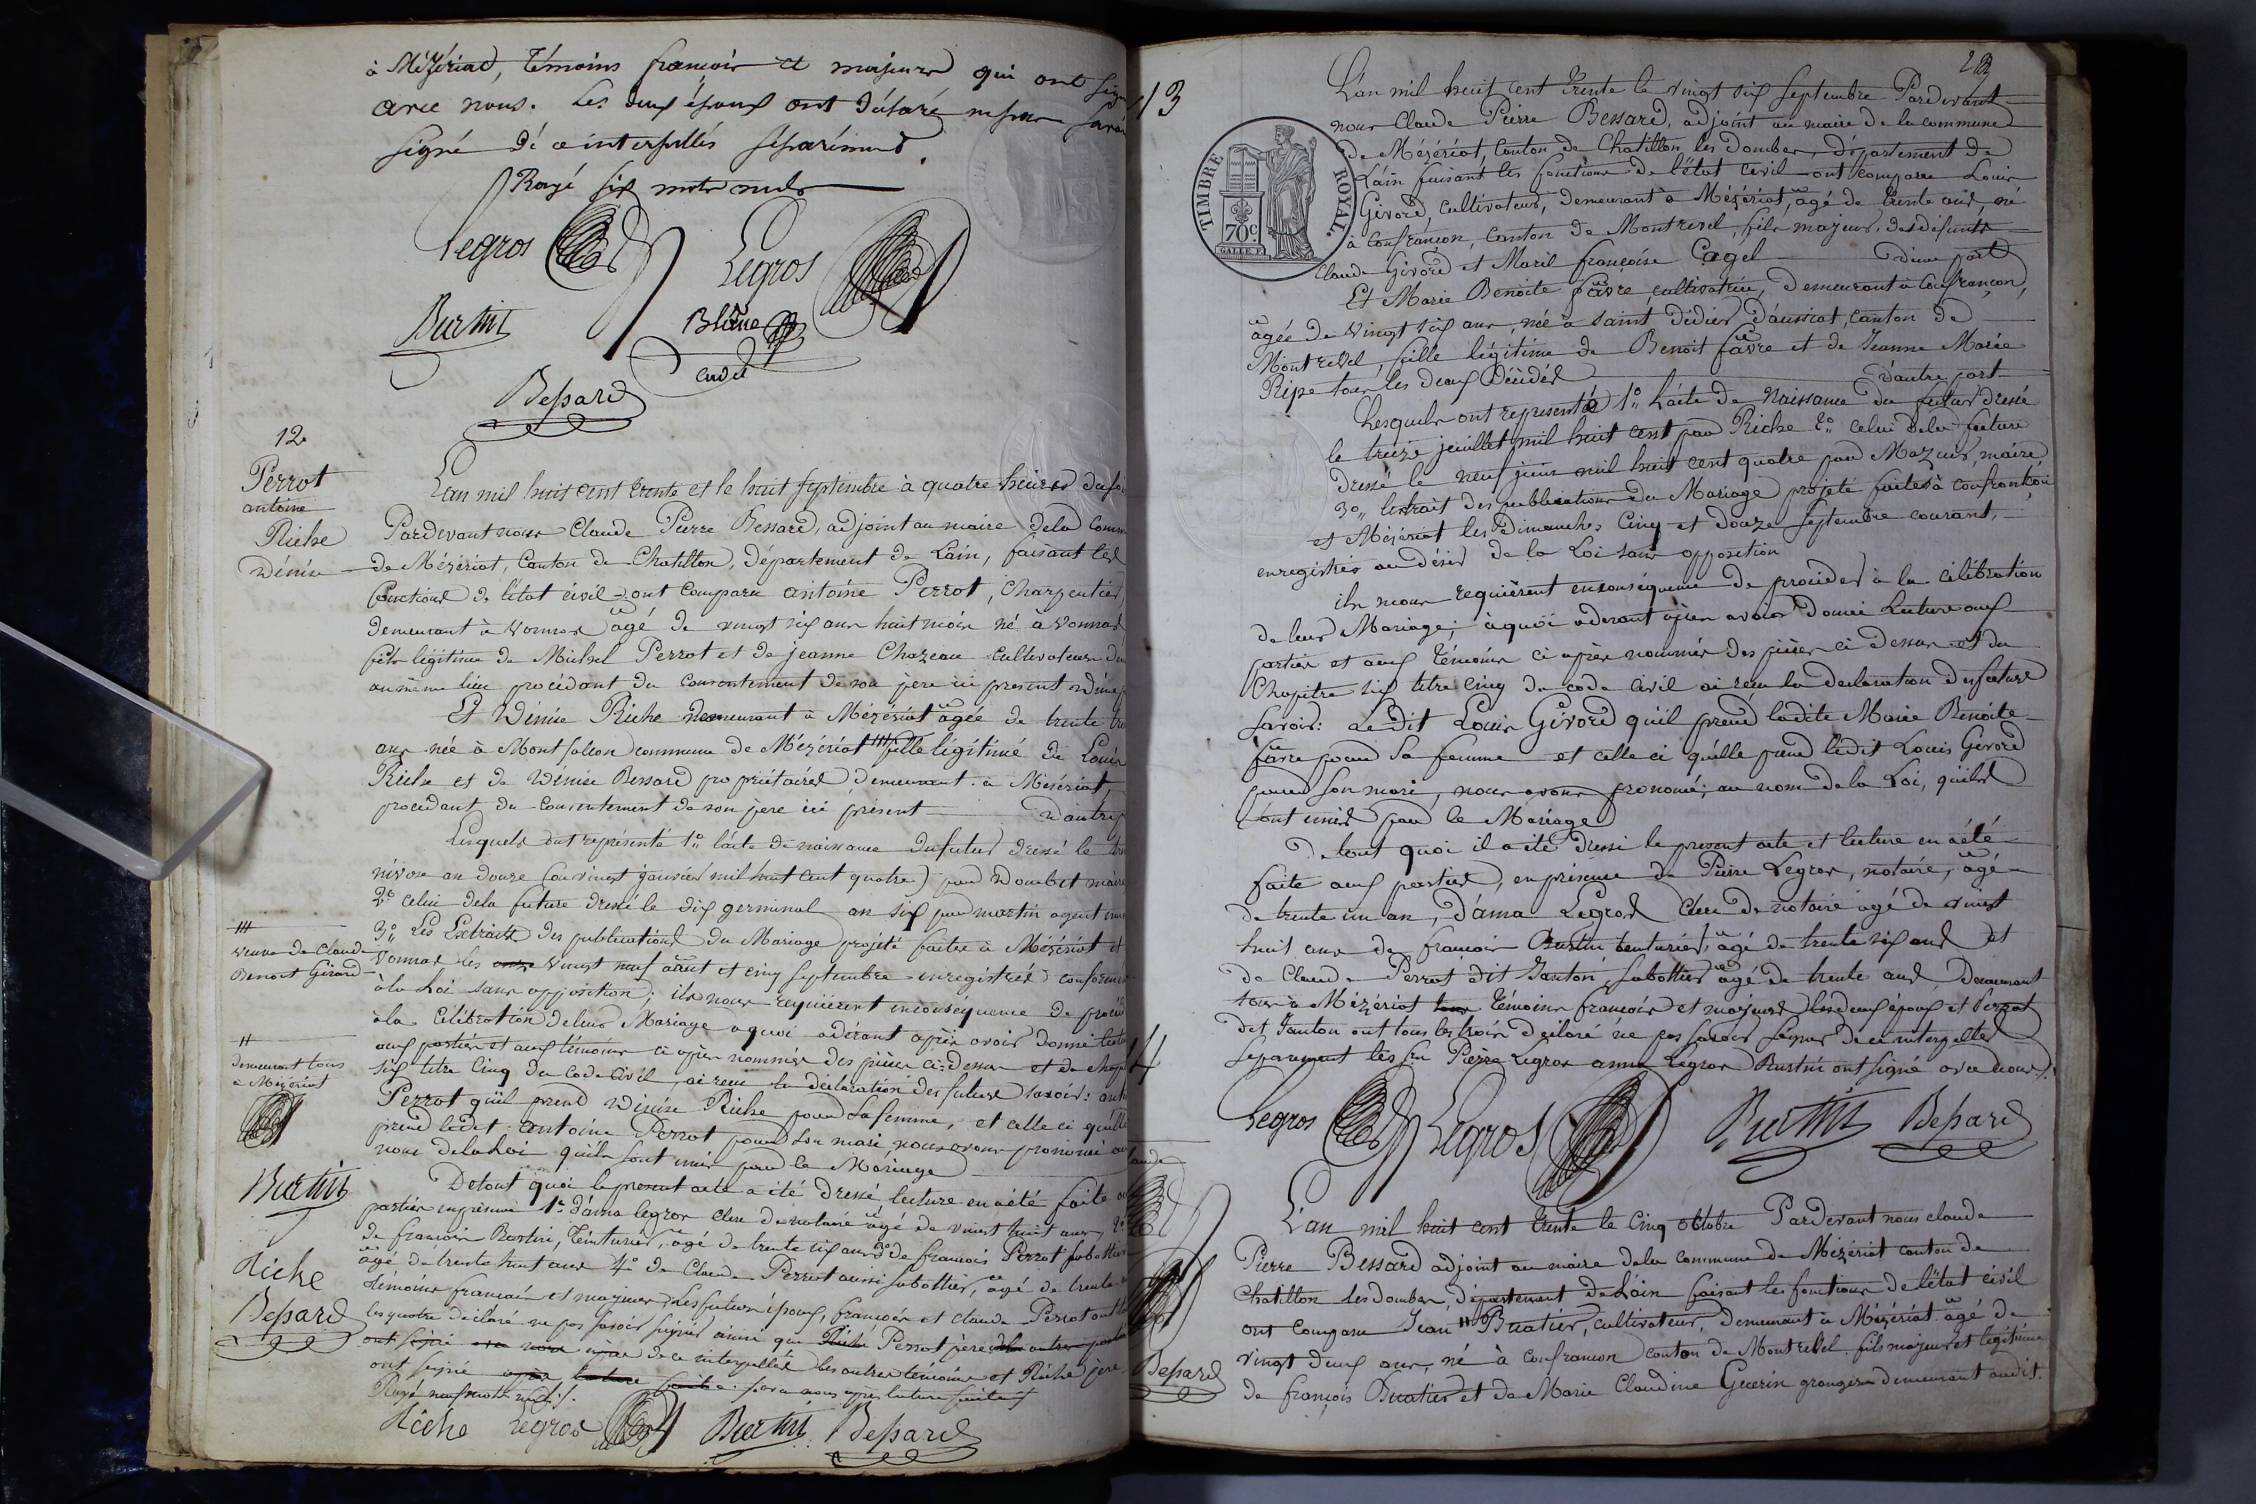 à Mézériat, témoins français et majeurs qui ont signé
avec nous. Les deux époux ont déclaré ne pas savoir
signé de ce interpellés séparément.
Rayé six mots nuls
Legros Legros
Burtin Blanc
cadet
Bessard
12
Perrot
antoine
Riche
Dénise
L'an mil huit cent trente et le huit septembre à quatre heures du so
Pardevant nous Claude Pierre Bessard, adjoint au maire de la comm
de Mézériat, Canton de Chatillon, département de Lain, faisant les
fonctions de l'état civil ont comparu antoine Perrot, Charpentier,
demeurant à Vonnas âgé de vingt six ans huit mois né à Vonnas
fils légitime de Michel Perrot et de jeanne Chazeau cultivateurs de
au même lieu procédant du consentement de son pere ici present d'une
Et Dénise Riche demeurant à Mézériat âgée de trente
ans née à Montfalcon commune de Mézériat fille légitime de Louis
Riche et de Dénise Bessard propriétaires demeurant à Mézériat,
procédant du consentement de son pere ici présent d'autre p
Lesquels ont représenté 1º l'acte de naissance du futur dressé le
nivose an douze (ou vingt janvier mil huit cent quatre) par Doubet maire
2º celui de la future dressé le dix germinal an six par martin agent
3º Les Extraits des publications du Mariage projeté faites à Mézériat et
Vonnas les vingt neuf août et cinq septembre enregistrées conform
à la Loi sans opposition; ils nous requièrent en conséquence de procéd
à la célébration de leur Mariage a quoi adérant après avoir donné lectu
aux parties et aux témoins ci après nommés des pièces ci-dessus et du chap
six titre Cinq du Code Civil, ai reçu la declaration des futurs savoir: anto
Perrot qu'il prend Dénise Riche pour sa femme, et celle ci qu'elle
prend ledit antoine Perrot pour son mari, nous avons prononcé au
nom de la Loi qu'ils sont unis par le Mariage
veuve de Claude
Benoit Girard
demeurant tous
a Mézériat
De tout quoi le present acte a été dressé lecture en a été faite au
parties en présence 1º d'ama legros clerc de notaire âgé de vingt huit ans, 2º
de françois Burtin, teinturier, âgé de trente six ans 3º de françois Perrot sabottier
âgé de trente huit ans 4º de Claude Perrot aussi sabottier, âgé de trente
témoins français et majeurs; les futurs époux, françois et claude Perrot ont
les quatre déclaré ne pas savoir signer ainsi que Riche Perrot père
ont signé avec nous de ce interpellé les autres témoins et Riche père
ont signé lecture faite avec nous après lecture faite
Rayé neuf mots nuls
Burtin
Riche
Bessard
Riche Legros Burtin Bessard
13
23
TIMBRE ROYAL.
70 C
L'an mil huit cent trente le vingt six septembre Pardevant
nous Claude Pierre Bessard, adjoint au maire de la commune
de Mézériat, Canton de Chatillon les dombes, département de
Lain faisant les fonctions de l'état civil ont comparu Louis
Givord, cultivateur, demeurant à Mézériat, âgé de trente ans, né
à confrançon, canton de Montrevel, fils majeur des défunts
Claude Givord et Marie françoise Cagel d'une part
Et Marie Benoite favre, cultivatrice, demeurant à Confrançon,
âgée de vingt six ans, née à saint didier d'aussiat, canton de
Montrevel, fille légitime de Benoit favre et de Jeanne Marie
Ripe tous les deux décédés d'autre part
Lesquels ont representé 1º L'acte de Naissance du futur dressé
le treize juillet mil huit cent par Riche 2º celui de la future
dressé le neuf juin mil huit cent quatre par Mazuir, maire
3º Lextrait des publications du Mariage projeté faites à confrançon
et Mézériat les Dimanches Cinq et douze septembre courant,
enregistrés au désir de la Loi sans opposition
ils nous requièrent en conséquence de procéder à la célébration
de leur Mariage; à quoi aderant après avoir donné lecture aux
parties et aux témoins ci après nommés des pièces ci dessus et du
Chapitre six titre cinq du code civil ai reçu la declaration des futurs
savoir: Ledit Louis Givord qu'il prend ladite Marie Benoite
favre pour sa femme et celle ci qu'elle prend ledit Louis Givord
pour son mari, nous avons prononcé, au nom de la Loi, qu'ils
sont unis par le Mariage
De tout quoi il a été dressé le present acte et lecture en a été
faite aux parties, en présence de Pierre Legros, notaire, âgé
de trente un an, d'ama Legros clerc de notaire agé de vingt
huit ans de françois Burtin teinturier, âgé de trente six ans et
de Claude Perrot dit Janton, sabottier âgé de trente ans, demeurant
tous à Mézériat tous témoins français et majeurs les deux époux et Perrot
dit Janton ont tous les trois déclaré ne pas savoir signer de ce interpellés
séparément les srs Pierre Legros ama Legros Burtin ont signé avec nous
Legros Legros Burtin Bessard
14
Bessard
L'an mil huit cent trente le cinq octobre Pardevant nous claude
Pierre Bessard adjoint au maire de la commune de Mézériat canton de
Chatillon les dombes, département de Lain faisant les fonctions de l'état civil
ont comparu Jean Buatier, cultivateur, demeurant à Mézériat agé de
vingt deux ans, né à confrançon canton de Montrevel fils majeur et légitime
de françois Buatier et de Marie Claudine Guerin grangers demeurant audit.